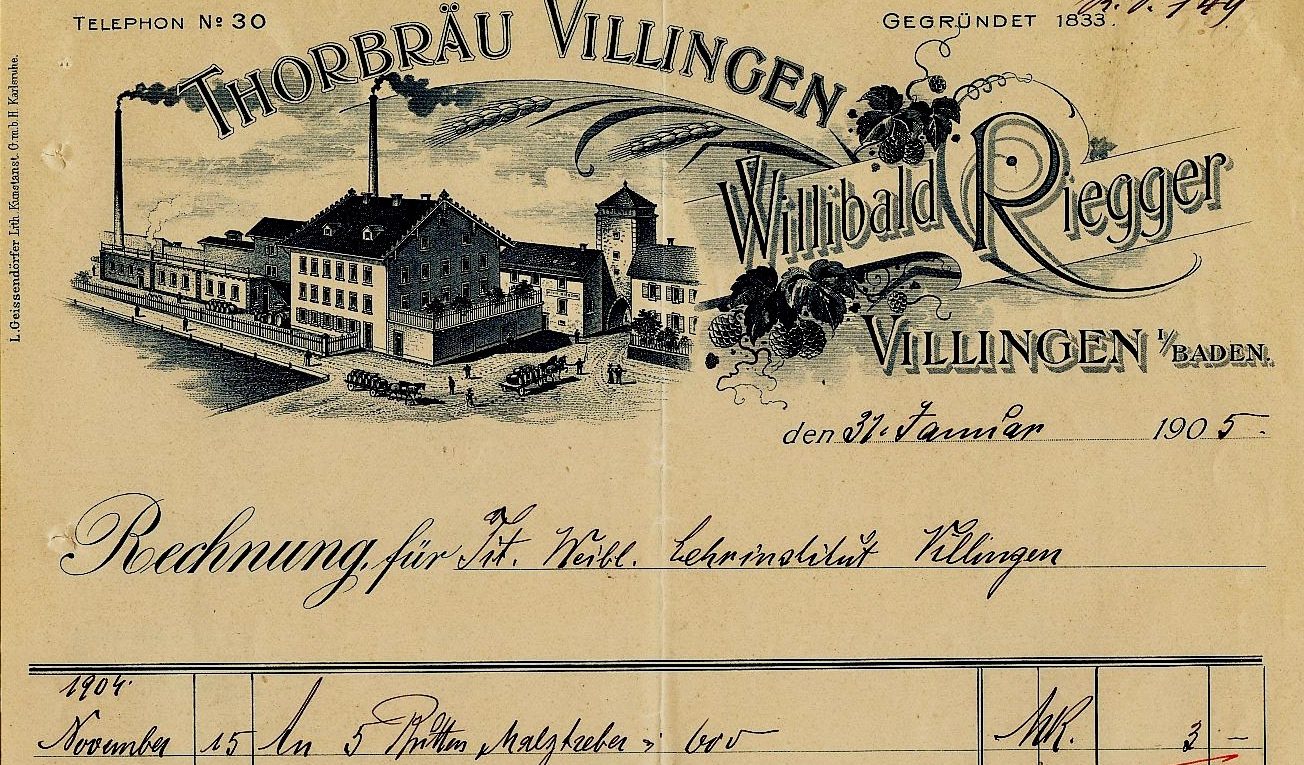 TELEPHON No 30
GEGRÜNDET 1833.
THORBRÄU VILLINGEN
Willibald Riegger
VILLINGEN I/BADEN.
L. Geissendörfer Lith. Kunstanst. G.m.b.H. Karlsruhe.
den 31. Januar 1905.
Rechnung für Tit. Weibl. Lehrinstitut Villingen
1904.
November 15 An 5 Malztreber MK. 3 –